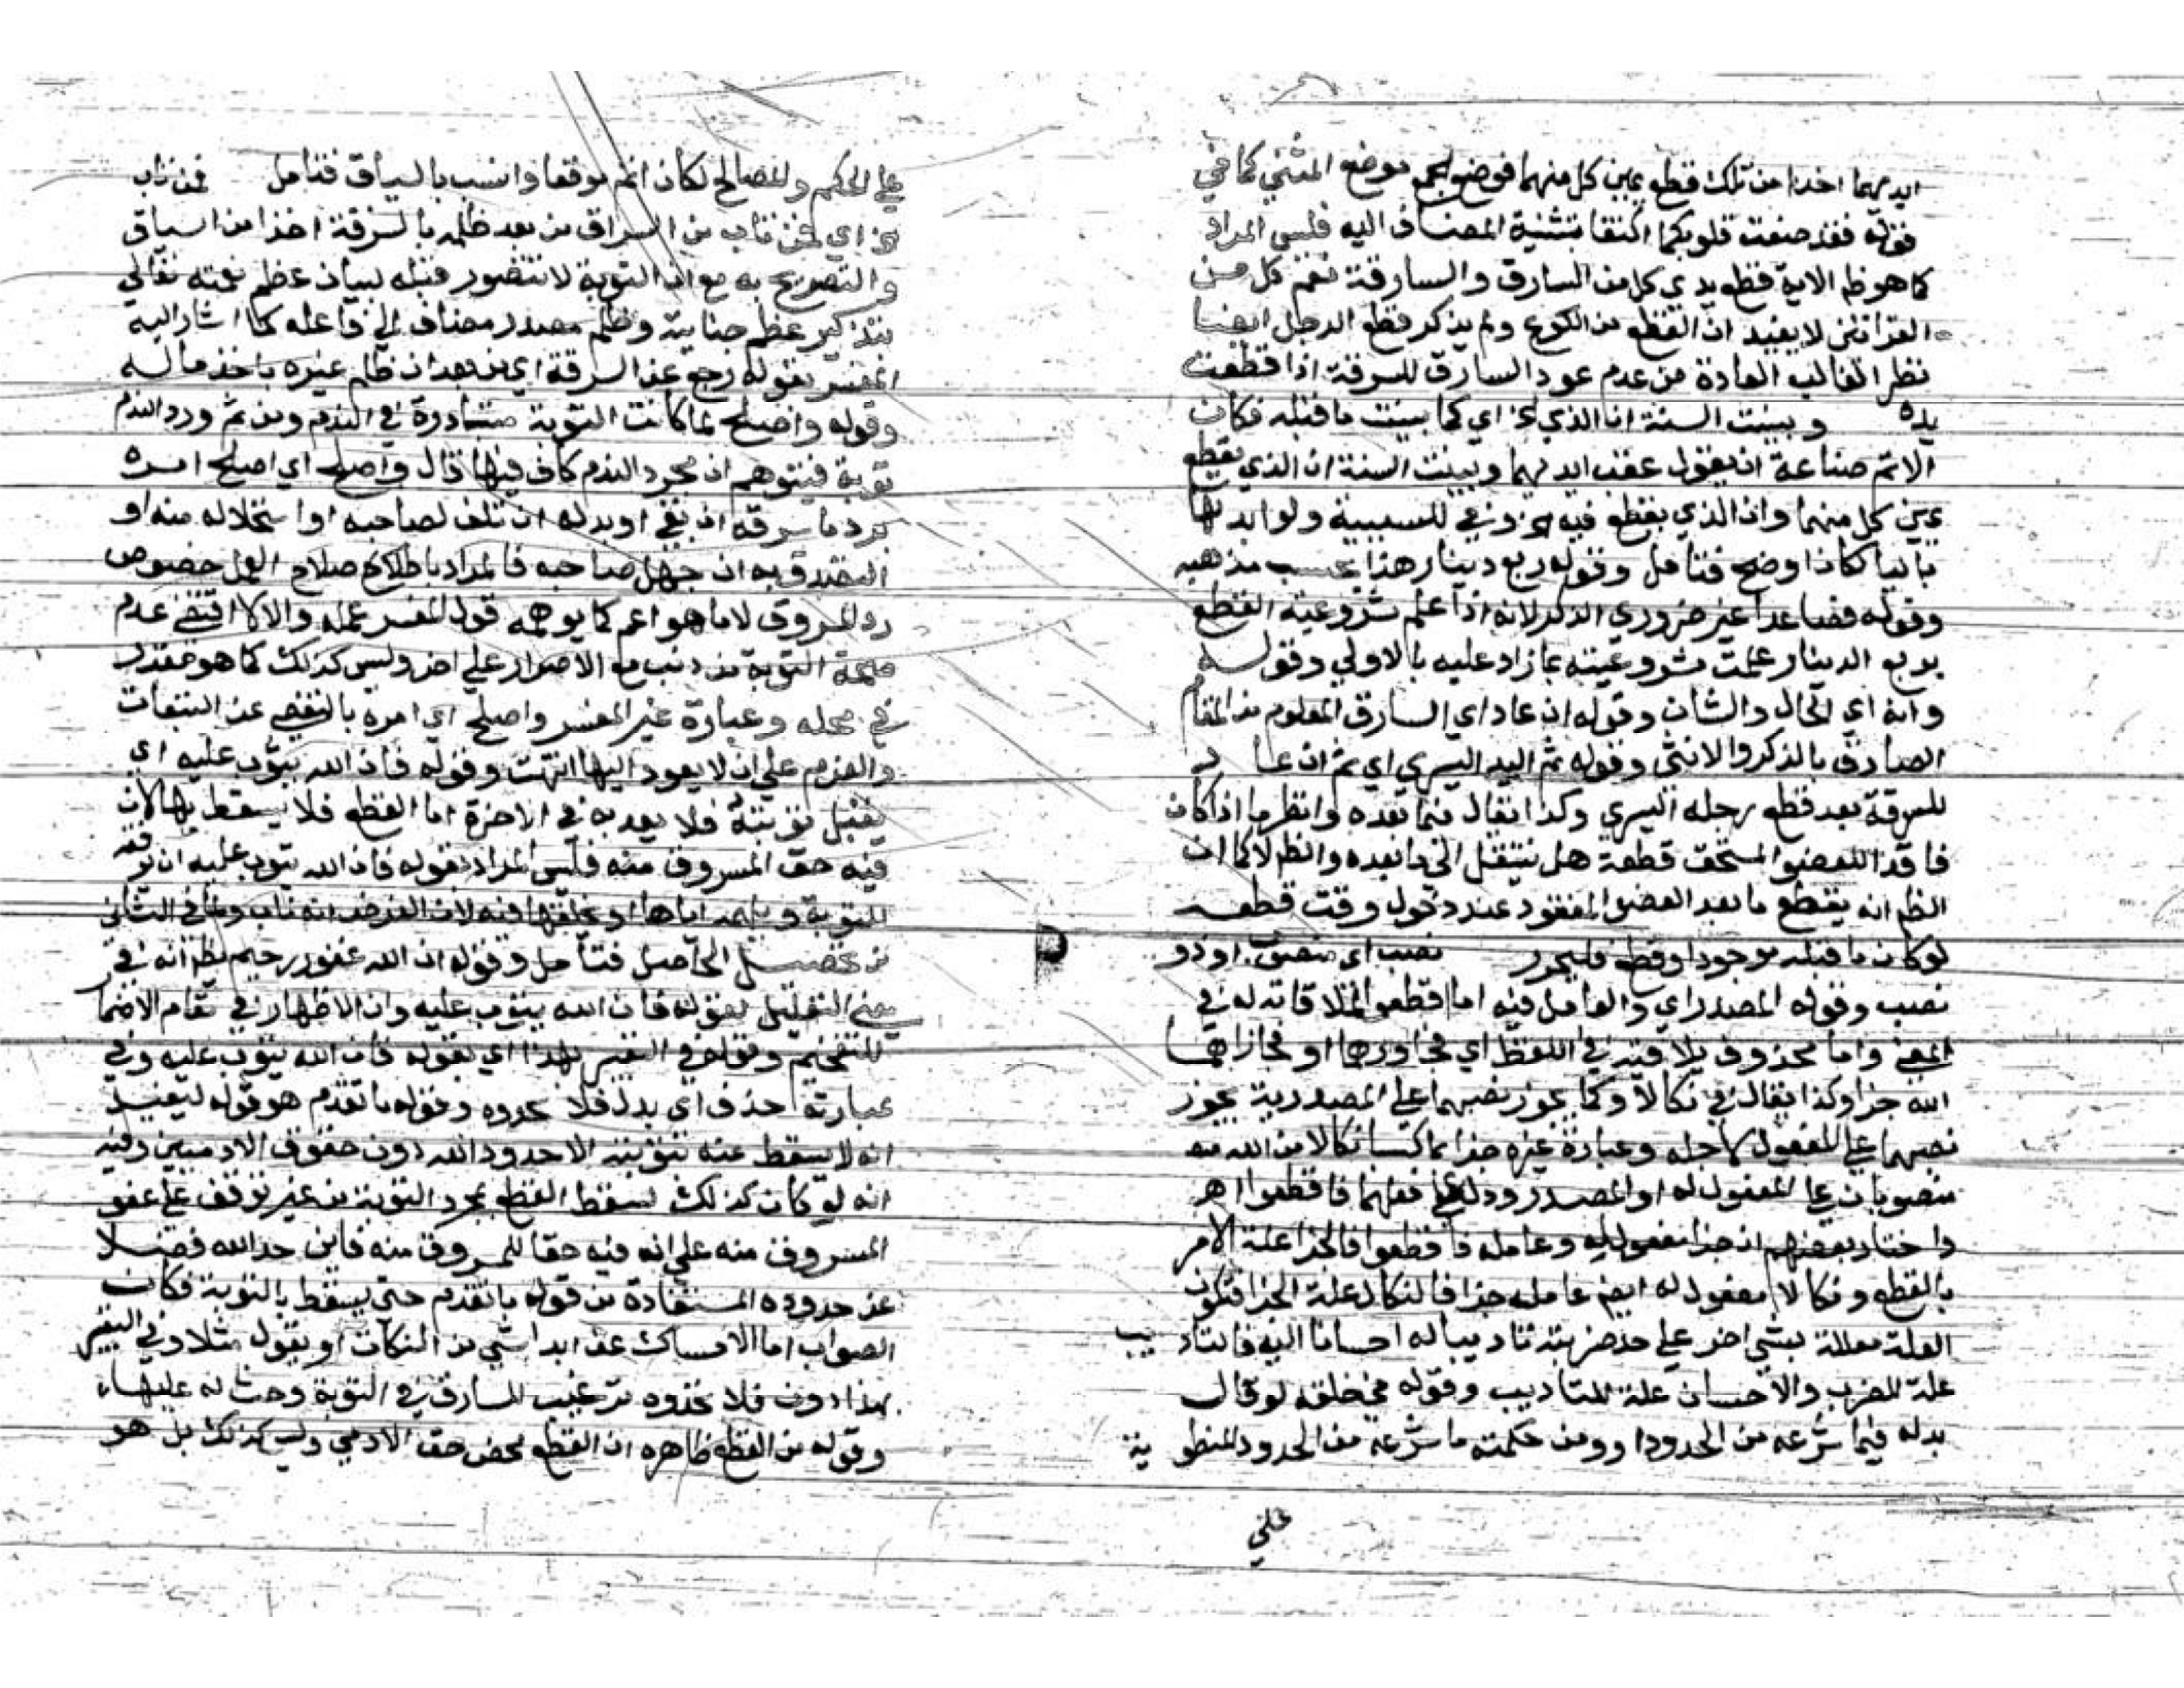 ايديهما اخذا من تلك قطع يمين كل منهما فوضع الجمع موضع المثنى كما في
قوله فقد صغت قلوبكما اكتفا بتثنية المضاف اليه فليس المراد
كما هو ظ الاية قطع يدي كل من السارق والسارقة نعم كل من
القراتين لا يفيد ان القطع من الكوع ولم يذكر قطع الرجل ايضا
نظرا لغالب العادة من عدم عود السارق للسرقة اذا قطعت
يده وبينت السنة ان الذي الخ اي كما بينت ما قبله فكان
الاتم صناعة ان يقول عقب ايديهما وبينت السنة ان الذي يقطع
يمين كل منهما وان الذي يقطع فيه الخ وفي للسببية ولو ابدلها
بالبا لكان اوضح فتامل وقوله ربع دينار هذا بحسب مذهبه
وقوله فصاعدا غير ضروري الذكر لانه اذا علم مشروعية القطع
بربع الدينار علمت مشروعيته بما زاد عليه بالاولي وقوله
وانه اي الحال والشان وقوله ان عاد اي السارق المعلوم من المقام
الصادق بالذكر والانثى وقوله ثم اليد اليسري اي ثم ان عاد
للسرقة بعد قطع رجله اليسري وكذا يقال فيما بعده وانظر ما اذا كان
فاقد العضو المستحق قطعه هل ينتقل الى ما بعده والظ لا كما ان
الظ انه يقطع ما بعد العضو المفقود عند دخول وقت قطعه
لو كان ما قبله موجودا وقطع فليحرر نصب اي منصوب او ذو
نصب وقوله المصدر اي والعامل فيه اما اقطعوا لملاقاته له في
المعنى واما محذوف يلاقيه في اللفظ اي فجاوزها او فجازاهما
الله جزا وكذا يقال في نكالا وكما يجوز نصبهما على المصدرية يجوز
نصبهما على المفعول لاجله وعبارة غيره جزا بما كسبا نكالا من الله
منصوبان على المفعول له او المصدر ودل على فعلهما فاقطعوا اهـ
واختار بعضهم ان جزا مفعول له وعامله فاقطعوا فالجزا علة الامر
بالقطع ونكالا مفعول له ايضم عامله جزا فالنكال علة الجزا فتكون
العلة معللة بشي اخر على حد ضربته تاديبا له احسانا اليه فالتاديب
علة للضرب والاحسان علة للتاديب وقوله في خلقه لو قال
بدله فيما شرعه من الحدود ا وومن حكمته ما شرعه من الحدود المنطوية
على
على الحكم والمصالح لكان اتم موقعا وانسب بالسياق فتامل فمن تاب
الخ اي فمن تاب من السراق من بعد ظلمه بالسرقة اخذا من السياق
والتصريح به مع ان التوبة لا تتصور قبله لبيان عظم نعمته تعالى
بتذكير عظم جنايته وظلم مصدر مضاف الى فاعله كما اشار اليه
المفسر بقوله رجع عن السرقة اي من بعد ان ظلم غيره باخذ ماله
وقوله واصلح لما كانت التوبة متبادرة في الندم ومن ثم ورد الندم
توبة فيتوهم ان مجرد الندم كاف فيها قال واصلح اي اصلح امره
برد ما سرقه ان بقي او بدله ان تلف لصاحبه او استحلاله منه او
التصدق به ان جهل صاحبه فالمراد باصلاح العمل خصوص
رد المسروق لا ما هو اعم كما يوهمه قول المفسر عمله والا لاقتضى عدم
صحة التوبة من ذنب مع الاصرار على اخر وليس كذلك كما هو مقرر
في محله وعبارة غير المفسر واصلح اي امره بالتفصي عن التبعات
والعزم على ان لا يعود اليها انتهت وقوله فان الله يتوب عليه اي
يقبل توبته فلا يعذبه في الاخرة اما القطع فلا يسقط بها لان
فيه حق المسروق منه فليس المراد بقوله فان الله يتوب عليه ان يوفقه
للتوبة ويلهمه اياها او يخلقها فيه لان الغرض انه تاب
من تحصيل الحاصل فتامل وقوله ان الله غفور رحيم ظ انه في
معنى التعليل لقوله فان الله يتوب عليه وان الاظهار في مقام الاضمار
للتفخيم وقوله في التعبير بهذا اي بقوله فان الله يتوب عليه وفي
عبارته حذف اي بدل فلا تحدوه وقوله ما تقدم هو قوله ليفيد
انه لا يسقط عنه بتوبته الا حدود الله دون حقوق الادميين وفيه
انه لو كان كذلك لسقط القطع بمجرد التوبة من غير توقف على عفو
المسروق منه على انه فيه حقا للمسروق منه فاين حد الله فضلا
عن حدوده المستفادة من قوله ما تقدم حتى يسقط بالتوبة فكان
الصواب اما الامساك عن ابدا شي من النكات او يقول مثلا وفي التعبير
بهذا دون فلا تحدوه ترغيب للسارق في التوبة وحث له عليها
وقوله من القطع ظاهره ان القطع محض حق الادمي وليس كذلك بل هو